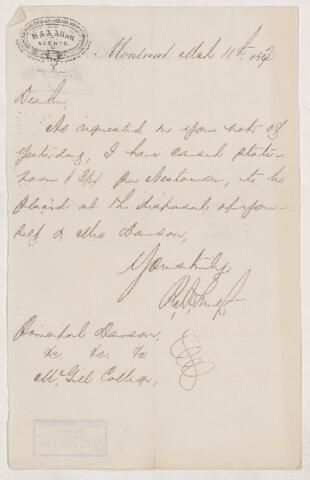 MONTREAL OCEAN STEAM SHIP COMPANY
H & A Allan
AGENTS
Montreal, Mch 11th 18
Dear Sir,
As requested in your note of
yesterday, I have caused state-
room per Nestorian, to be
placed at the disposal of your-
self & Mrs Dawson,
Yours truly
Principal Dawson,
&c. &c. &c
McGill College,